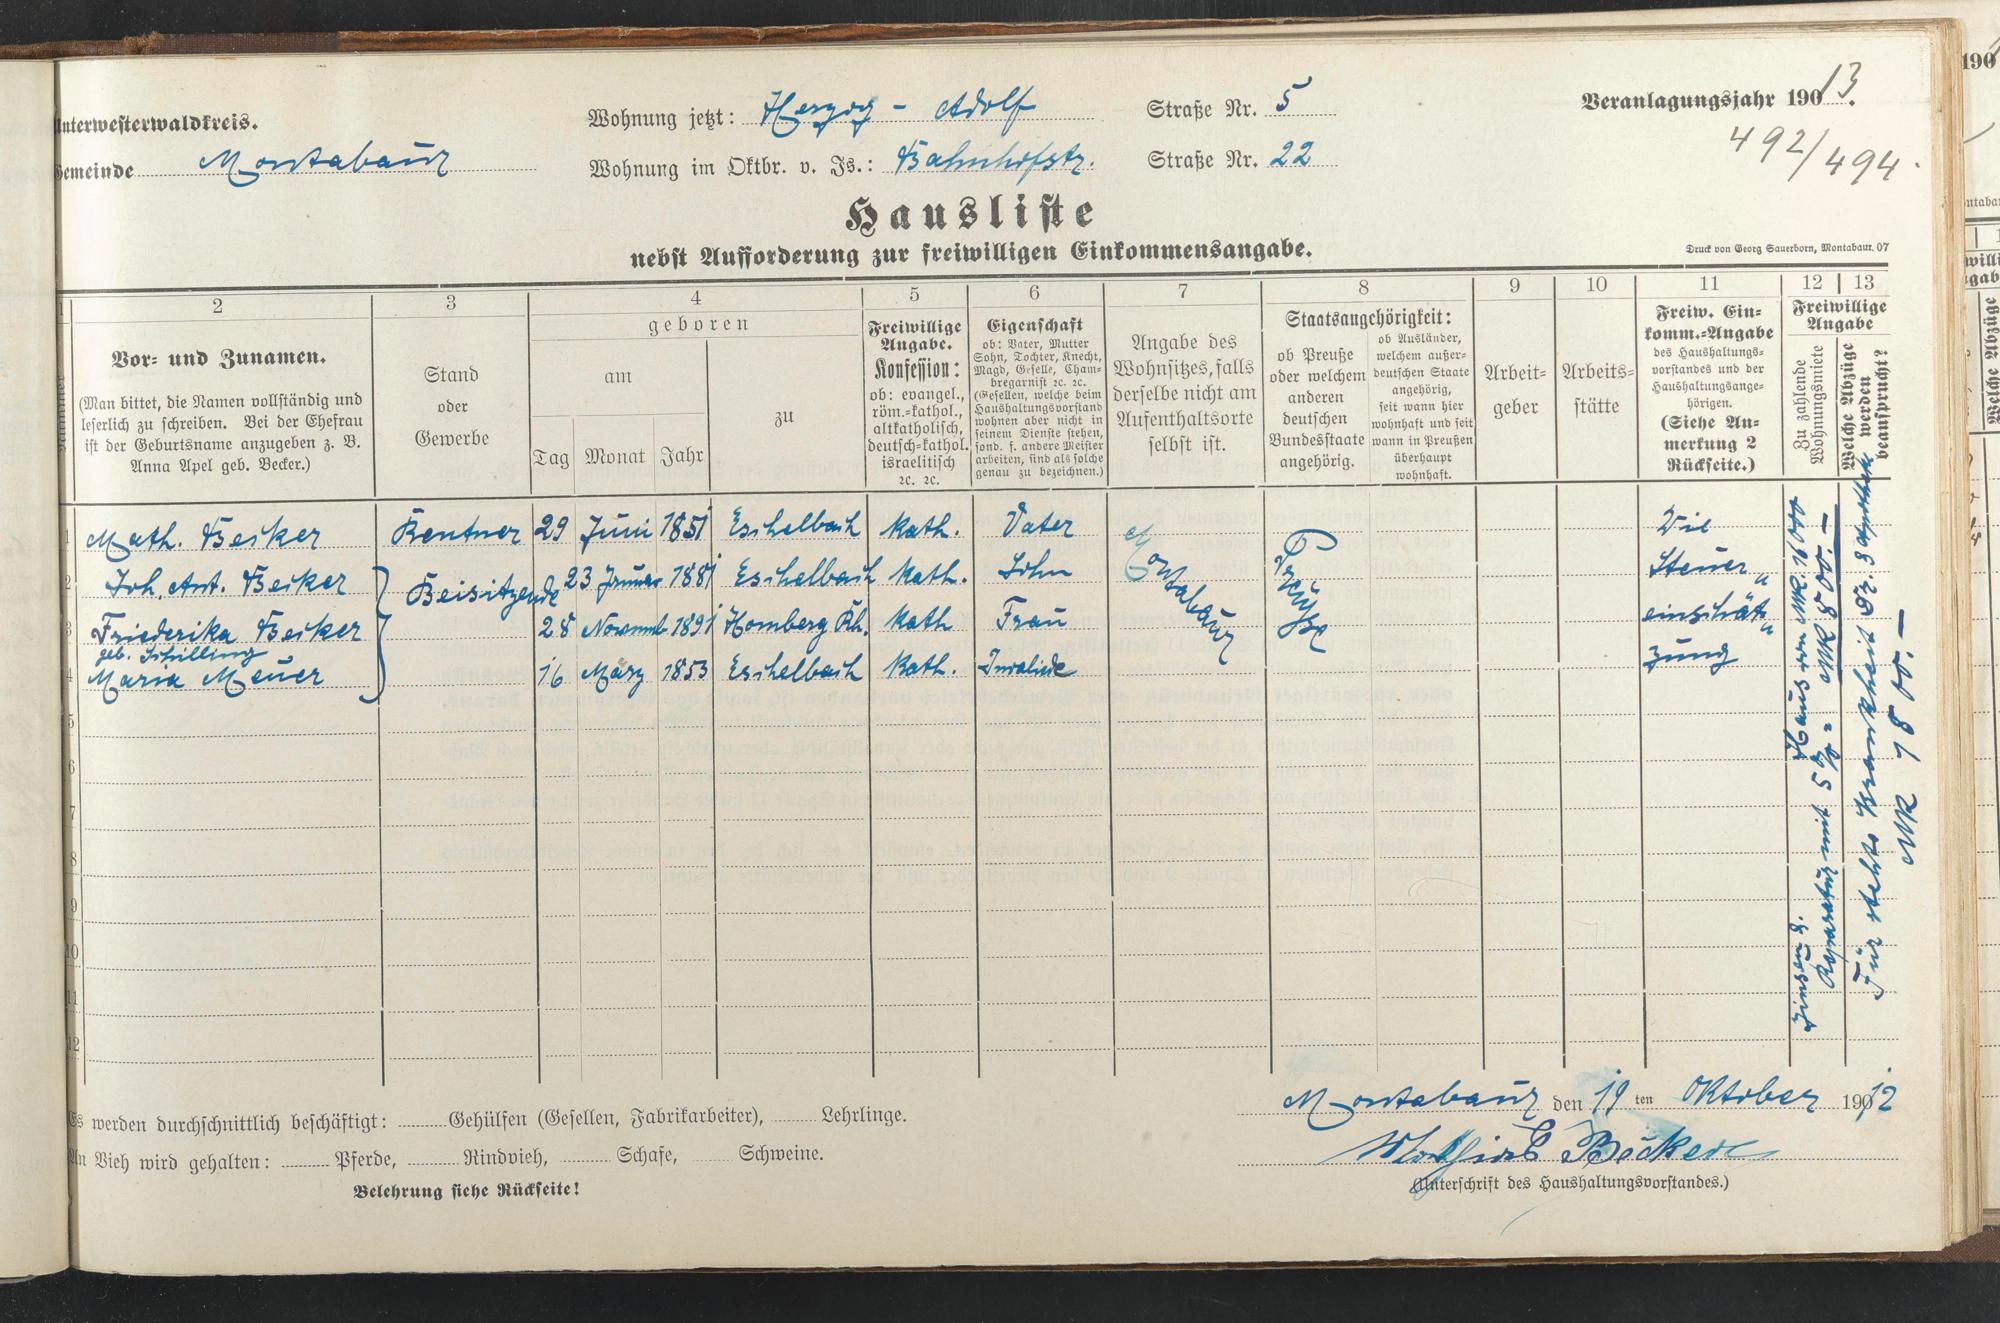 Unterwesterwaldkreis.
Gemeinde Montabaur
Wohnung jetzt: Herzog - Adolf Straße Nr. 5
Wohnung im Oktbr. v. Js.: Bahnhofstr. Straße Nr. 22
Veranlagungsjahr 190 13.
492/494.
Hausliste
nebst Aufforderung zur freiwilligen Einkommensangabe.
Druck von Georg Sauerborn, Montabaur. 07
1 2 3 4 5 6 7 8 9 10 11 12 13
Vor- und Zunamen.
(Man bittet, die Namen vollständig und
leserlich zu schreiben. Bei der Ehefrau
ist der Geburtsname anzugeben z. B.
Anna Apel geb. Becker.)
Stand
oder
Gewerbe
geboren
am
Tag Monat Jahr
zu
Freiwillige
Angabe.
Konfession:
ob: evangel.,
röm.=kathol.,
altkatholisch,
deutsch=kathol.
israelitisch
2c. 2c.
Eigenschaft
ob: Vater, Mutter
Sohn, Tochter, Knecht,
Magd, Geselle, Cham-
bregarnist 2c. 2c.
(Gesellen, welche beim
Haushaltungsvorstand
wohnen aber nicht in
seinem Dienste stehen,
sond. f. andere Meister
arbeiten, sind als solche
genau zu bezeichnen.)
Angabe des
Wohnsitzes, falls
derselbe nicht am
Aufenthaltsorte
selbst ist.
Staatsangehörigkeit:
ob Preuße
oder welchem
anderen
deutschen
Bundesstaate
angehörig.
ob Ausländer,
welchem außer-
deutschen Staate
angehörig,
seit wann hier
wohnhaft und seit
wann in Preußen
überhaupt
wohnhaft.
Arbeit=
geber
Arbeits=
stätte
Freiw. Ein-
komm.=Angabe
des Haushaltungs-
vorstandes und der
Haushaltungsange-
hörigen.
(Siehe An-
merkung 2
Rückseite.)
Freiwillige
Angabe
Zu zahlende
Wohnungsmiete
Welche Abzüge
werden
beansprucht?
1 Math. Becker Rentner 29 Juni 1851 Eschelbach kath. Vater
2 Joh. Ant. Becker Beisitzende 23 Januar 1881 Eschelbach kath. Sohn
3 Friederika Becker 28 Novemb 1891 Homberg Rh. kath Frau
geb. Schilling
4 Maria Meuer 16 März 1853 Eschelbach kath. Invalide
Montabaur
Preuße
Die
Steuer "
einschät "
zung
5
6
7
8
9
10
11
12
Es werden durchschnittlich beschäftigt: Gehülfen (Gesellen, Fabrikarbeiter), Lehrlinge.
An Vieh wird gehalten: Pferde, Rindvieh, Schafe, Schweine.
Belehrung siehe Rückseite!
Montabaur den 19 ten Oktober 190 12
Mathias Becker
(Unterschrift des Haushaltungsvorstandes.)